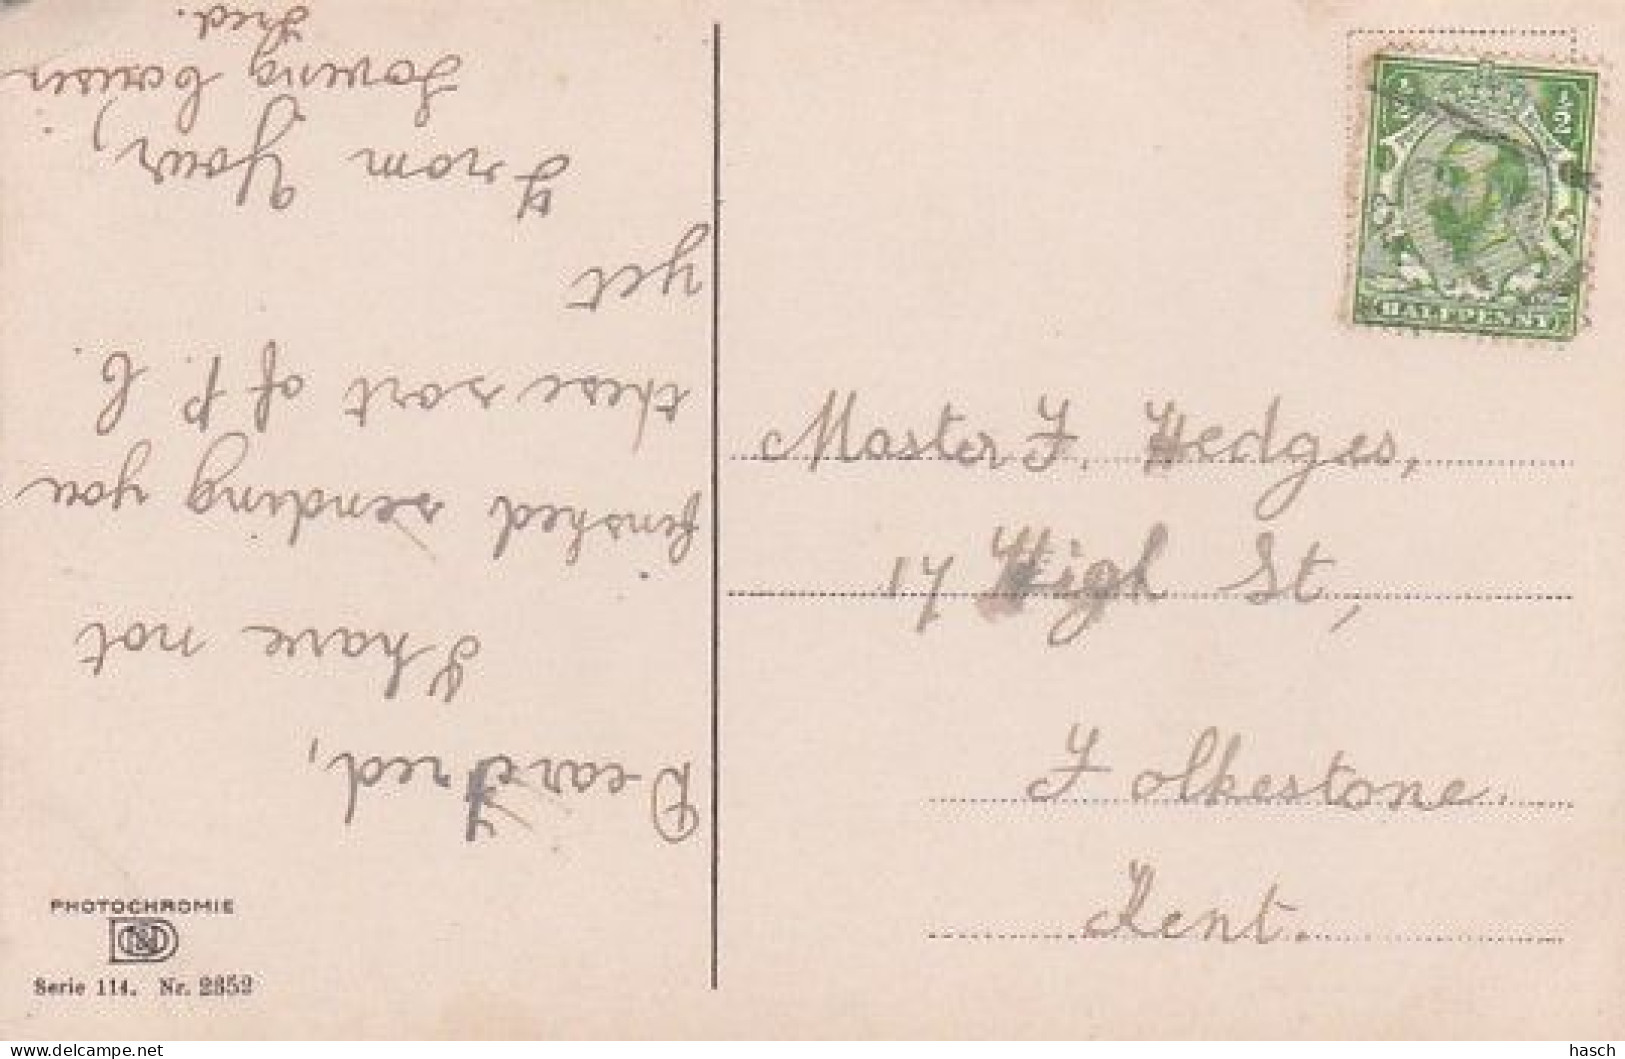 Dear Fred,
I have not
finshed sending you
these sort of P. C.
yet
From Your,
Loving Cousin
Fred.
½ ½
HALFPENNY
Master F. Hedges,
17 High St,
Folkestone.
Kent.
PHOTOCHROMIE
Serie 114. Nr. 2352
© https://www.delcampe.net hasch